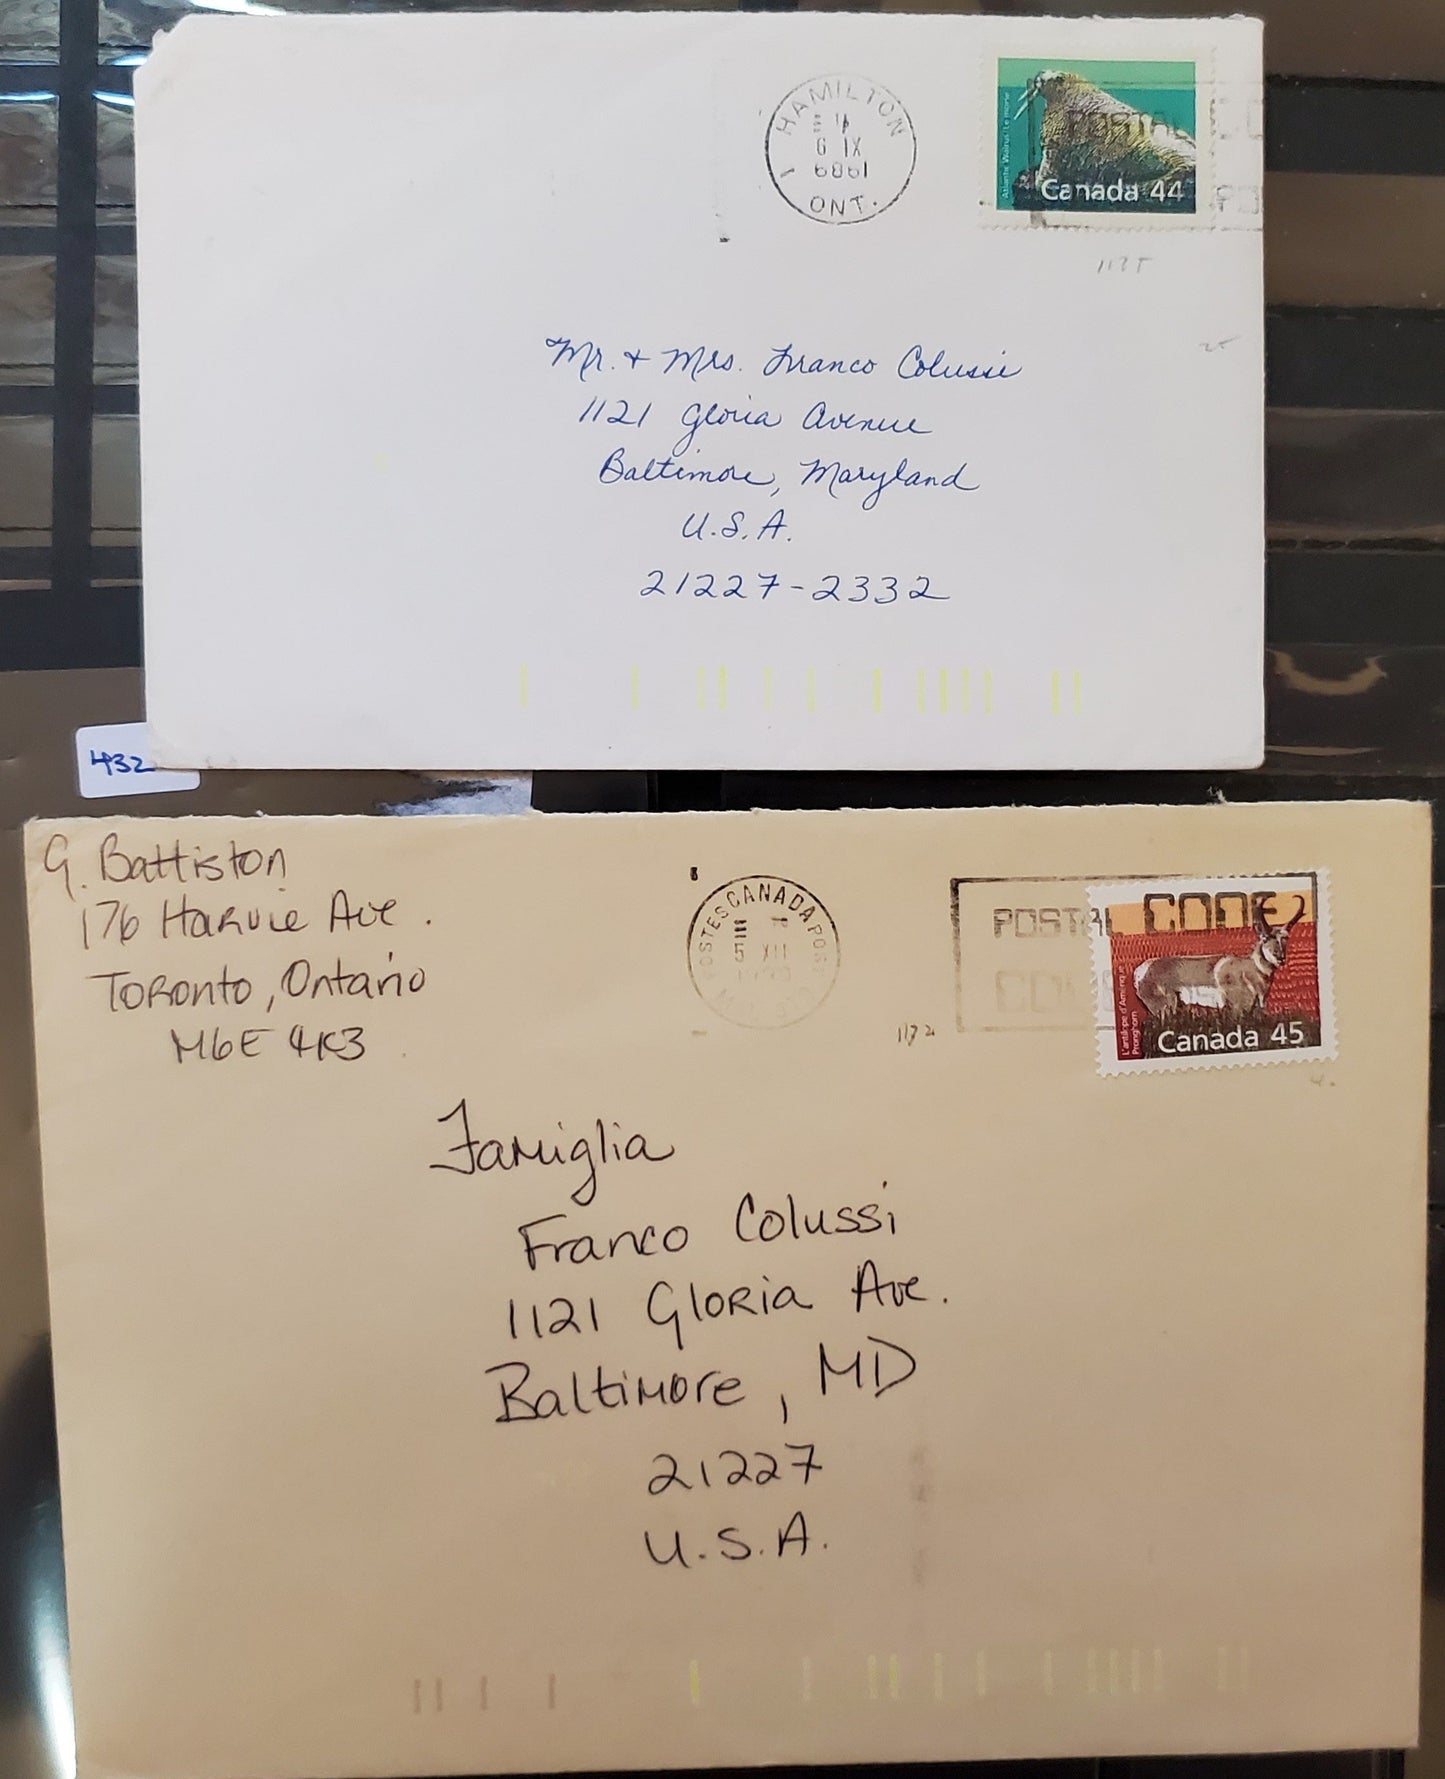 HAMILTON
6 IX
1989
ONT.
Atlantic Walrus / Le morse
POSTAL
Canada 44
Mr. + Mrs. Franco Colussi
1121 Gloria Avenue
Baltimore, Maryland
U.S.A.
21227-2332
432
G. Battiston
176 Harvie Ave.
Toronto, Ontario
M6E 4K3
POSTES CANADA POST
5 XII
POSTAL CODE
L'antilope d'Amérique
Pronghorn
Canada 45
1172
Famiglia
Franco Colussi
1121 Gloria Ave.
Baltimore, MD
21227
U.S.A.